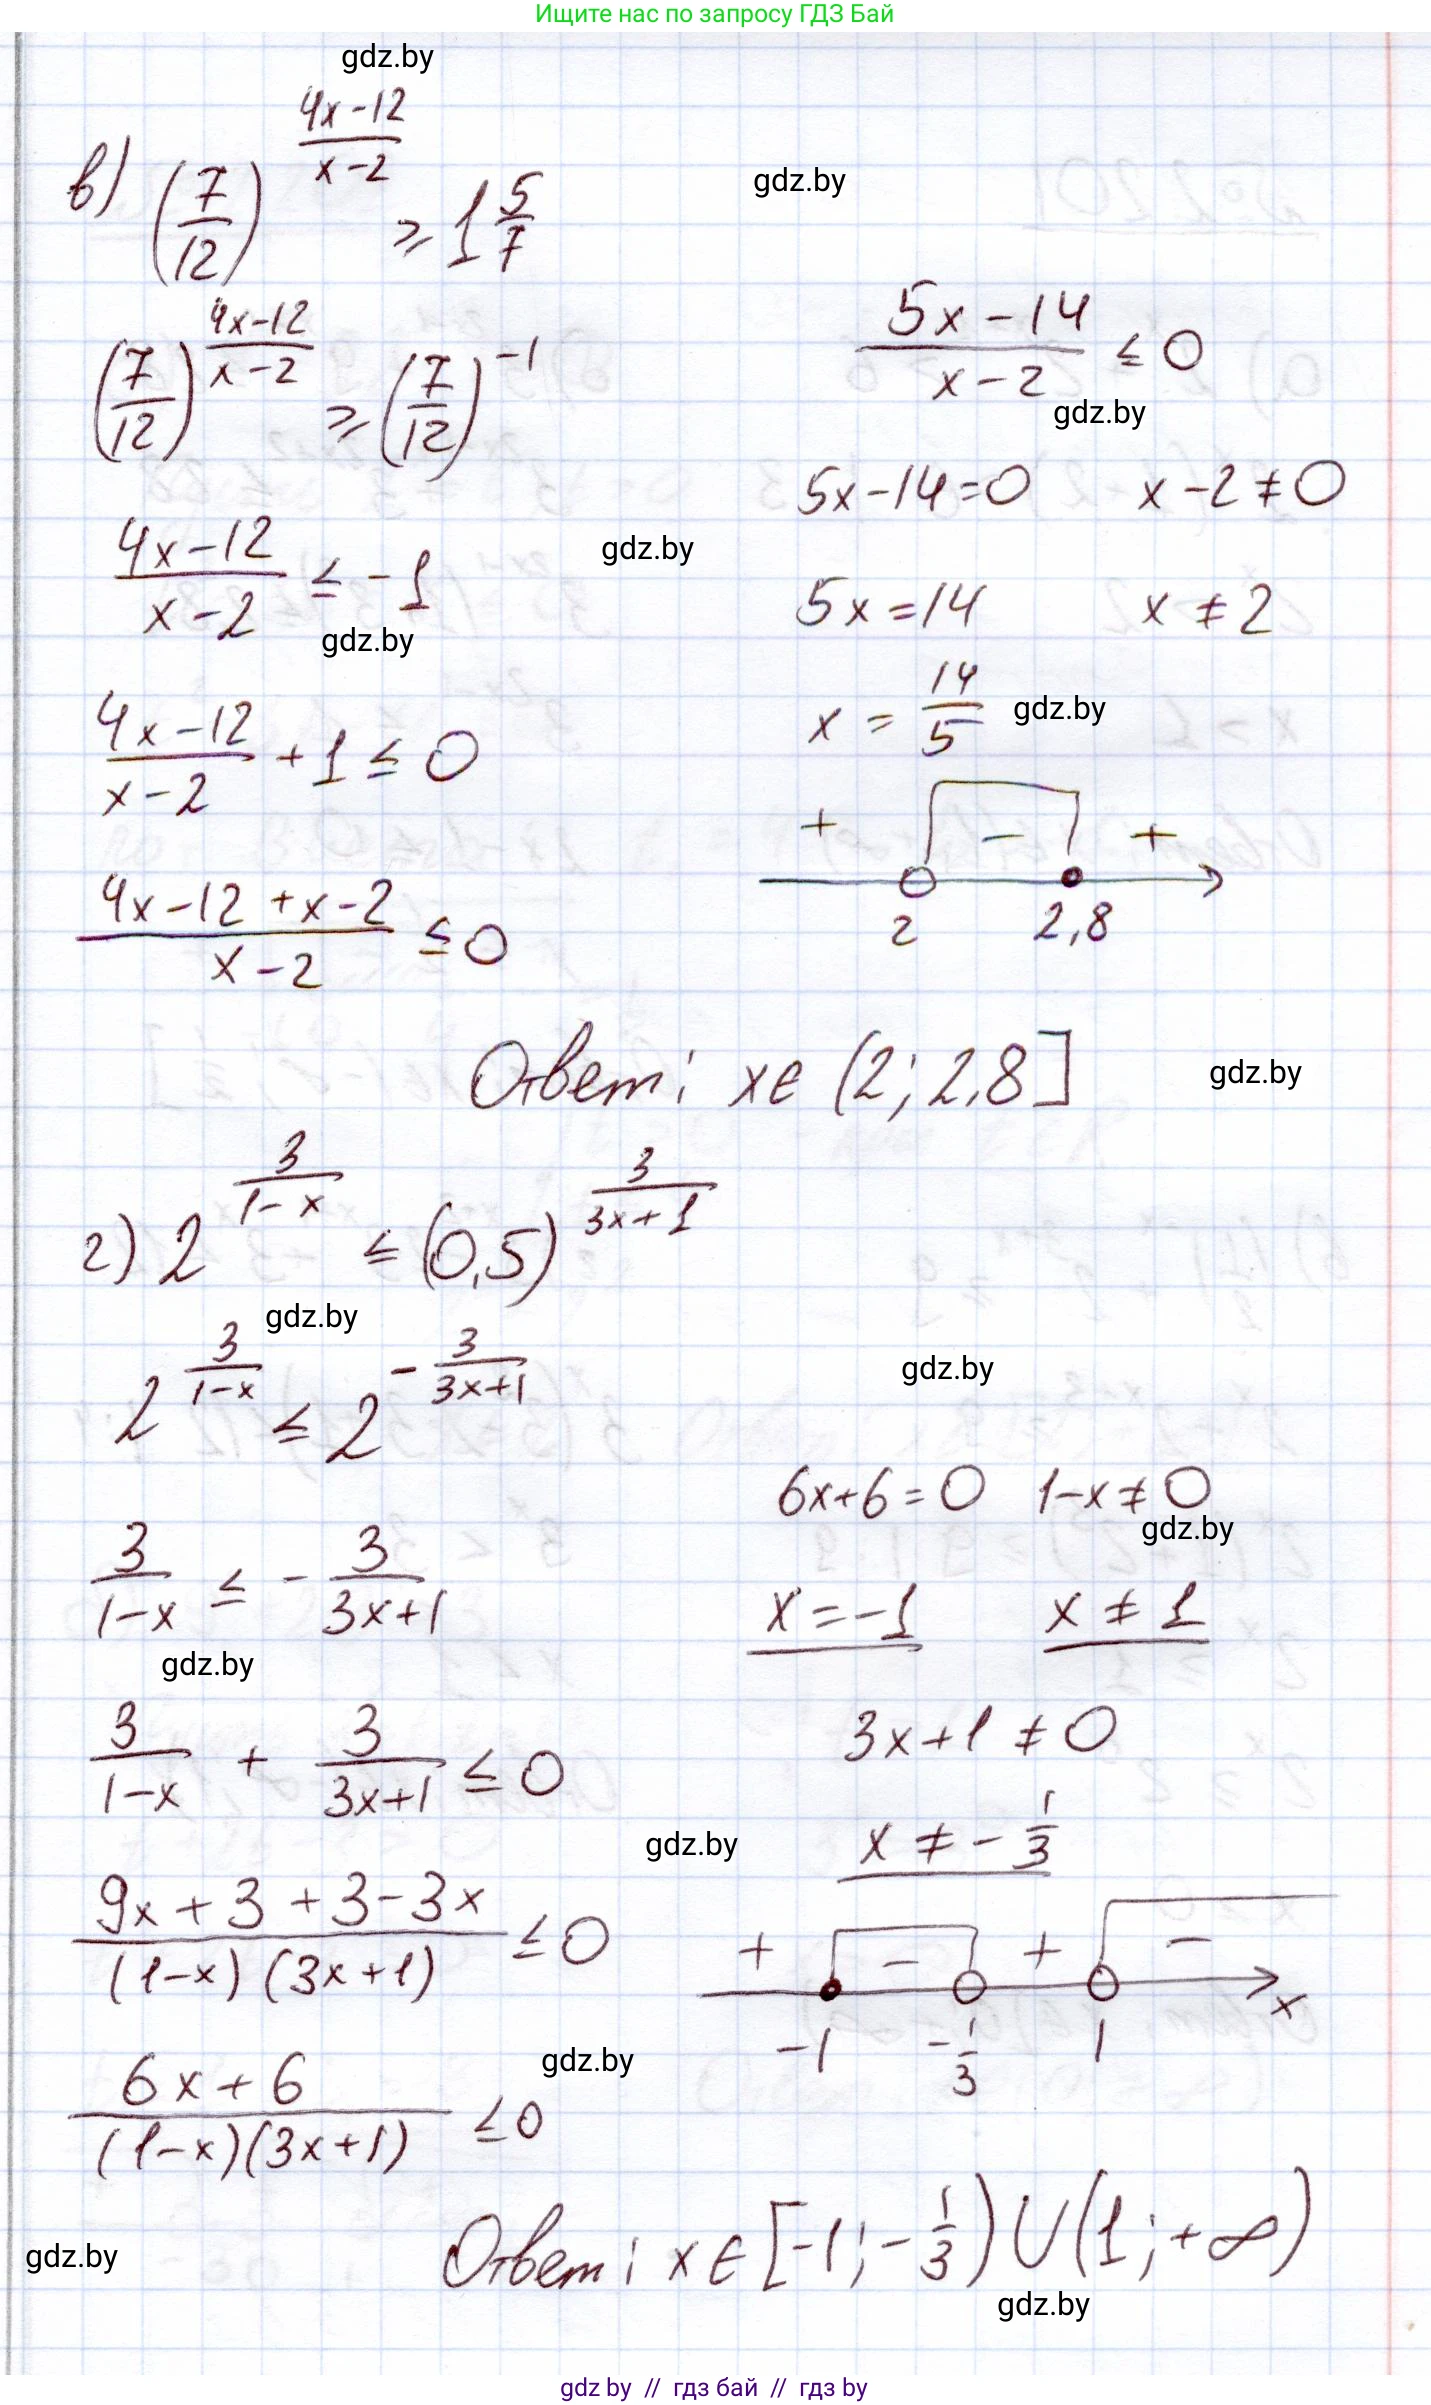 Ищите нас по запросу ГДЗ Бай
gdz.by
в) (7/12)^((4x-12)/(x-2)) ≥ 1 5/7
gdz.by
(7/12)^((4x-12)/(x-2)) ≥ (7/12)^(-1)
(4x-12)/(x-2) ≤ -1
gdz.by
gdz.by
(4x-12)/(x-2) + 1 ≤ 0
(4x-12+x-2)/(x-2) ≤ 0
(5x-14)/(x-2) ≤ 0
gdz.by
5x-14=0 x-2≠0
5x=14 x≠2
x = 14/5 gdz.by
+ - +
2 2,8
Ответ: x∈(2; 2,8]
gdz.by
г) 2^(3/(1-x)) ≤ (0,5)^(3/(3x+1))
gdz.by
2^(3/(1-x)) ≤ 2^(-3/(3x+1))
gdz.by
3/(1-x) ≤ -3/(3x+1)
gdz.by
3/(1-x) + 3/(3x+1) ≤ 0
gdz.by
(9x+3+3-3x)/((1-x)(3x+1)) ≤ 0
(6x+6)/((1-x)(3x+1)) ≤ 0
gdz.by
6x+6=0 1-x≠0
gdz.by
x=-1 x≠1
3x+1≠0
x≠-1/3
+ - + -
-1 -1/3 1 x
Ответ: x∈[-1; -1/3)∪(1; +∞)
gdz.by
gdz.by
gdz.by // гдз бай // гдз by